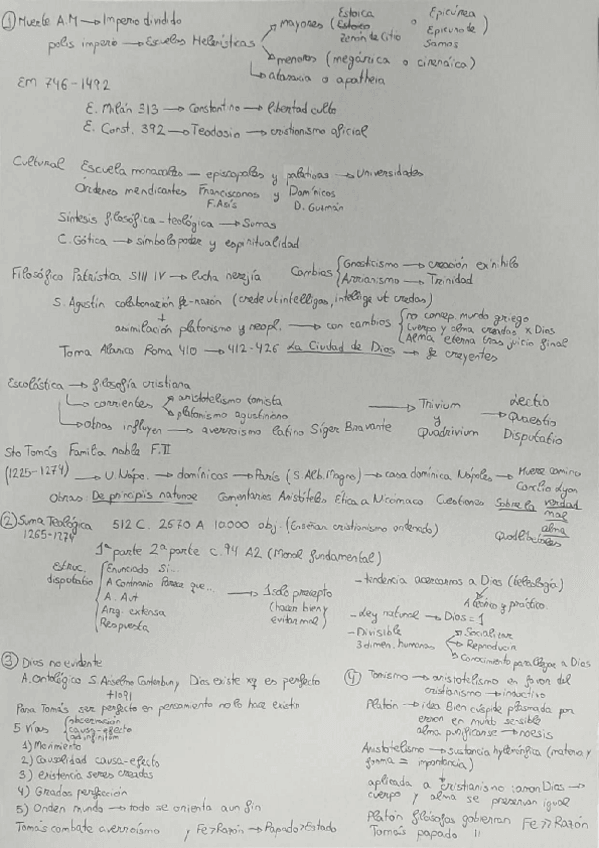 ① Muerte A.M → Imperio dividido
polis imperio → Escuelas Helenísticas
mayores (Estoica Zenón de Citio o Epicúrea Epicuro de Samos)
menores (megárica o cirenaica)
ataraxia o apatheia
EM 746-1492
E. Milán 313 → Constantino → libertad culto
E. Const. 392 → Teodosio → cristianismo oficial
Cultural Escuela monacales – episcopales y palatinas → Universidades
Órdenes mendicantes Franciscanos y Domínicos
F. Asís D. Guzmán
Síntesis filosófica-teológica → Sumas
C. Gótica → símbolo poder y espiritualidad
Filosófico Patrística SIII IV → lucha herejía Cambios
Gnosticismo → creación ex nihilo
Arrianismo → Trinidad
S. Agustín colaboración fe-razón (crede ut intelligas, intellige ut credas)
+
asimilación platonismo y neopl. → con cambios
no concep. mundo griego
Cuerpo y alma creados x Dios
Alma eterna tras juicio final
Toma Alarico Roma 410 → 412-426 La Ciudad de Dios → fe creyentes
Escolástica → filosofía cristiana
corrientes
aristotelismo tomista
platonismo agustiniano
otras influyen → averroísmo latino Siger Bravante
→ Trivium y Quadrivium →
Lectio
Quaestio
Disputatio
Sto Tomás Familia noble F.II
(1225-1274) → U. Nápo. → domínicos → París (S. Alb. Magno) → casa domínica Nápoles → Muere camino Concilio Lyon
Obras De principiis naturae Comentarios Aristóteles Ética a Nicómaco Cuestiones Sobre la verdad
mal
alma
Quodlibetales
② Suma Teológica 512 C. 2670 A 10.000 obj. (Enseñar cristianismo ordenado)
1265-1274
1ª parte 2ª parte c.94 A2 (Moral fundamental)
estruc. disputatio
Enunciado Si...
A Contrario Parece que...
A. Aut
Arg. extensa
Respuesta
→ 1 solo precepto
(hacer bien y evitar mal)
– tendencia acercarnos a Dios (teleología)
teórico y práctico.
– Ley natural → Dios = 1
– Divisible
3 dimen. humanas
Socializar
Reproducir
Conocimiento para llegar a Dios
③ Dios no evidente
A. Ontológico S. Anselmo Canterbury Dios existe xq es perfecto
+1091
Para Tomás ser perfecto en pensamiento no lo hace existir
5 vías
observación
causa-efecto
ad infinitum
1) Movimiento
2) Causalidad causa-efecto
3) existencia seres creados
4) Grados perfección
5) Orden mundo → todo se orienta a un fin
Tomás combate averroísmo y Fe>Razón → Papado>Estado
④ Tomismo → aristotelismo en favor del cristianismo → inductivo
Platón → idea Bien cúspide plasmada por
error en mundo sensible
alma purificarse → noesis
Aristotelismo → sustancia hylemórfica (materia y
forma = importancia)
aplicada a cristianismo : aman Dios →
cuerpo y alma se preservan igual
Platón filósofos gobiernan Fe>>Razón
Tomás papado 11